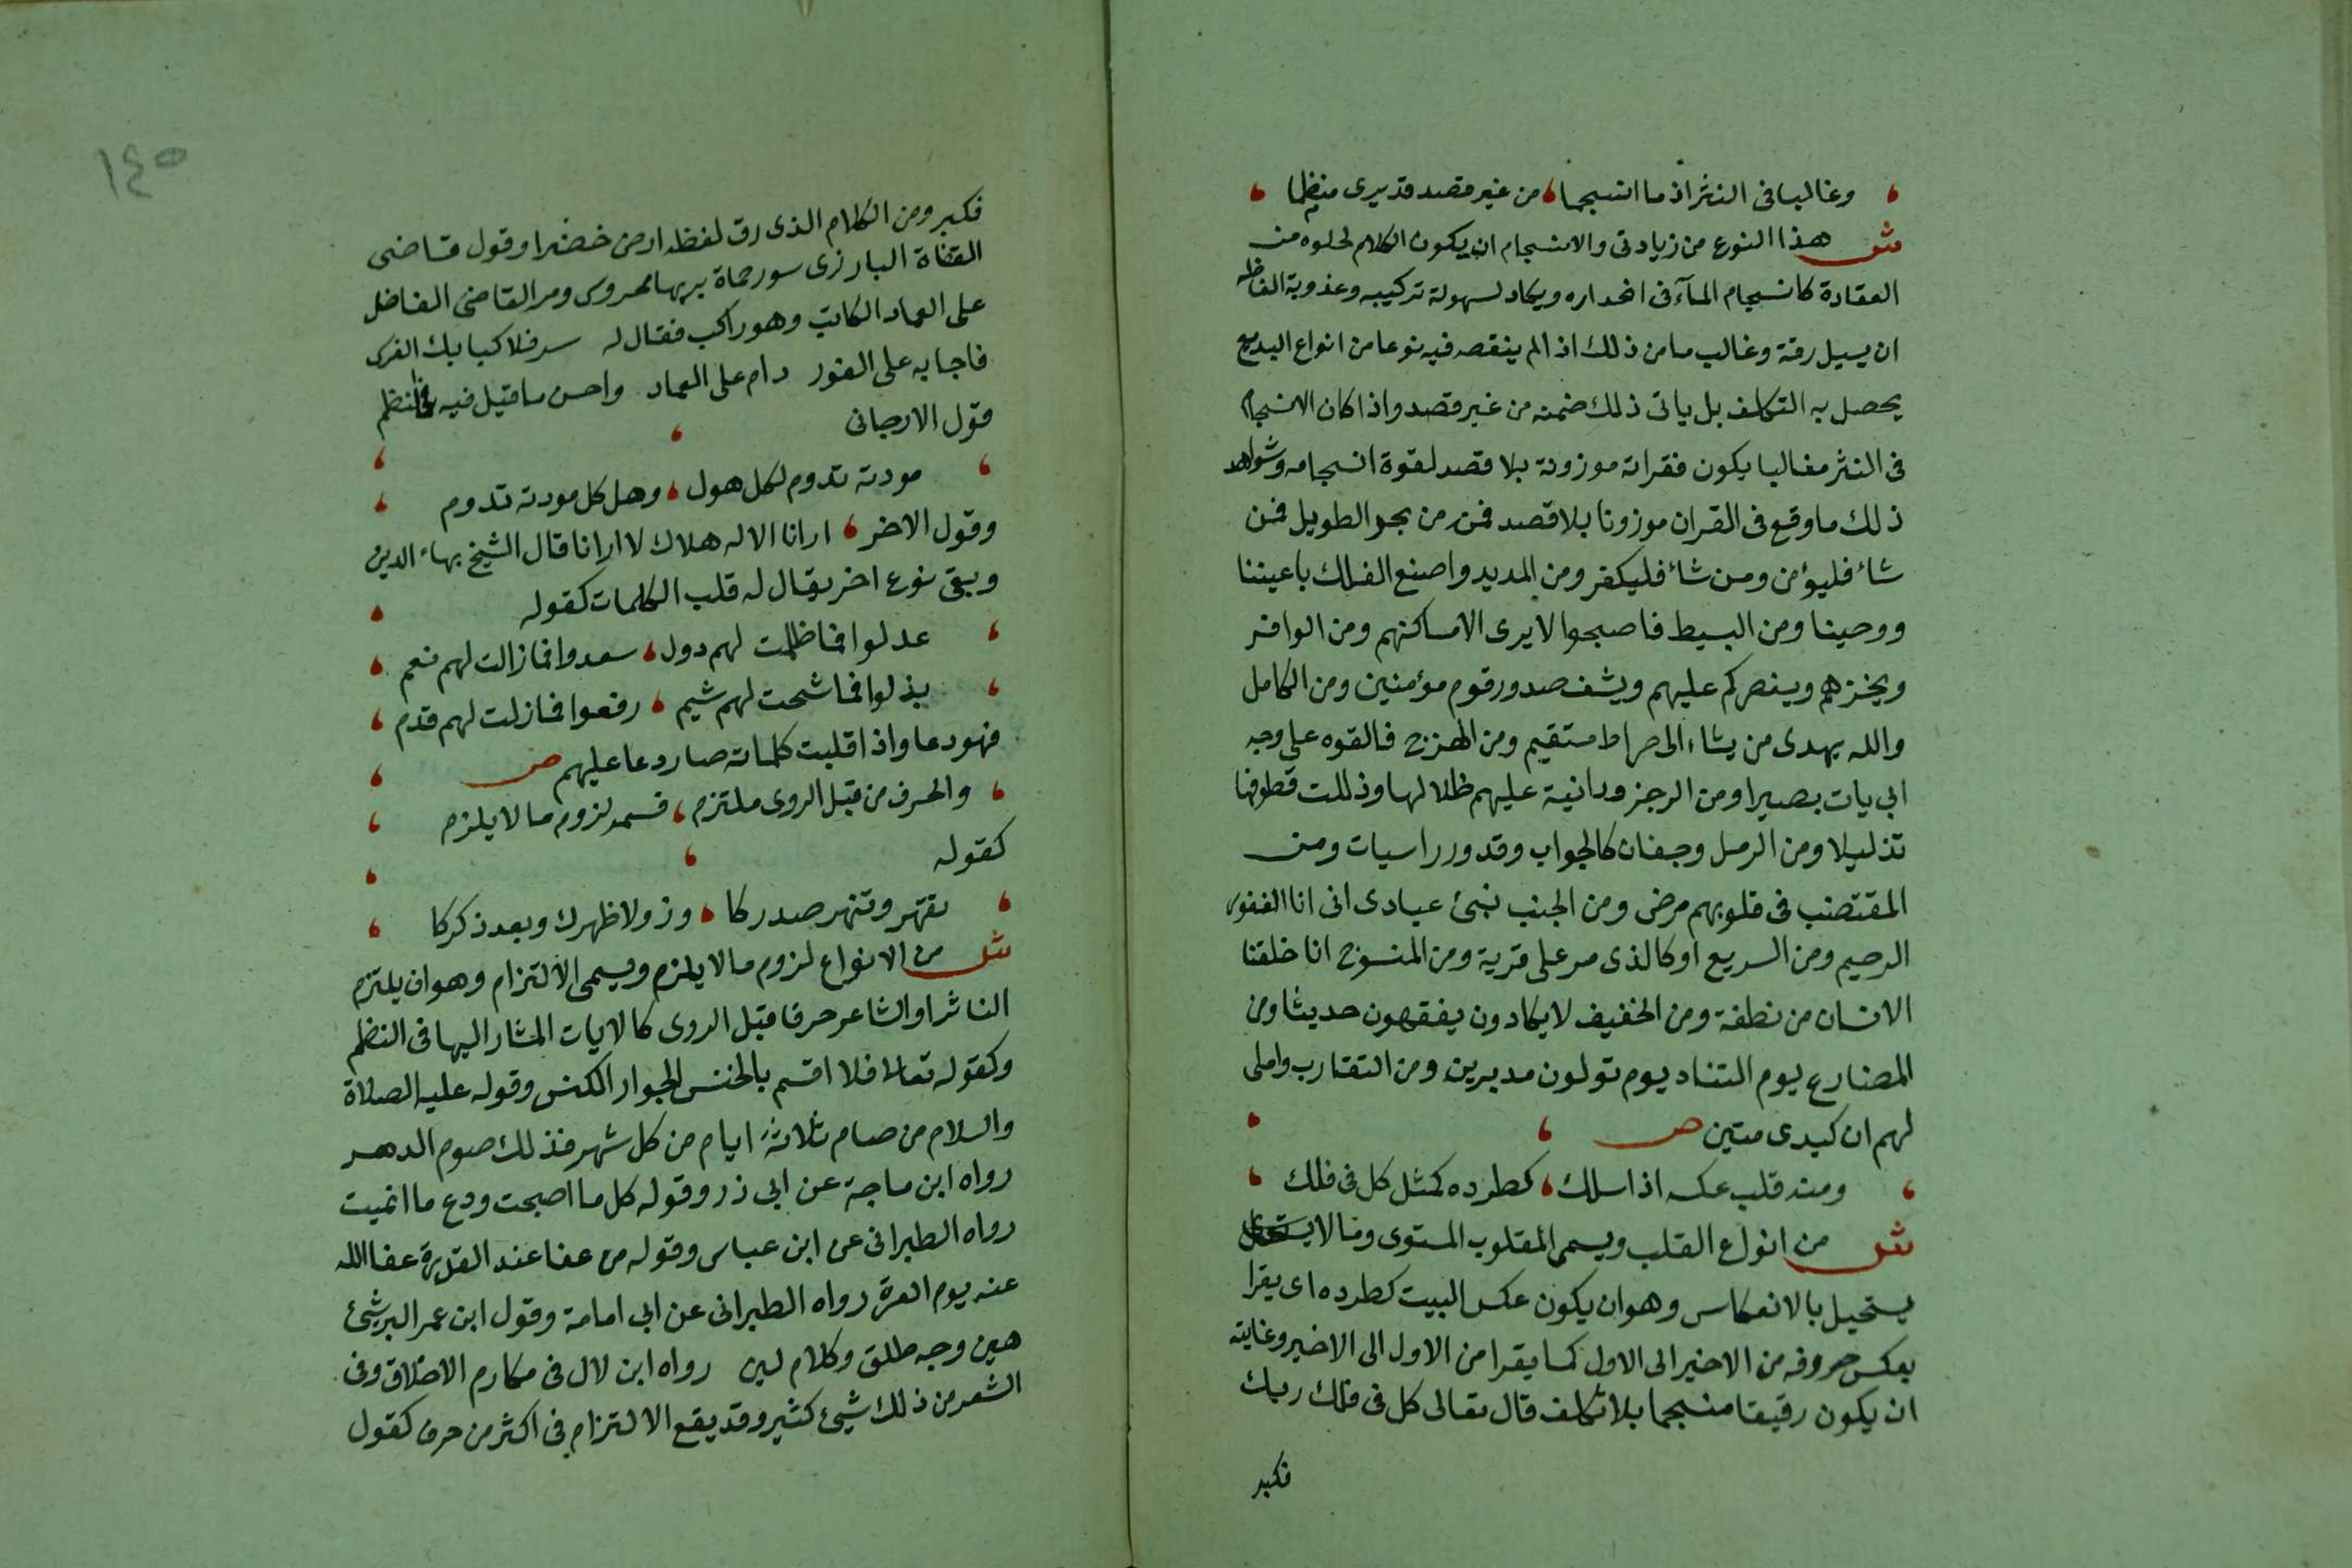 وغالبا فى النثر اذ ما انسجما ، من غير قصد قد يرى منظما
ش هذا النوع من زيادتى والانسجام ان يكون الكلام لخلوه من
العقادة كانسجام المآء فى انحداره ويكاد لسهولة تركيبه وعذوبة الفاظه
ان يسيل رقة وغالب ما من ذلك اذ الم ينقصه فيه نوعا من انواع البديع
يحصل به التكلف بل ياتى ذلك ضمنه من غير قصد واذا كان الانسجام
فى النثر مغالبا يكون فقراته موزونة بلا قصد لقوة انسجامه وشواهد
ذلك ما وقع فى القران موزونا بلا قصد فمن من بحر الطويل فمن
شاء فليؤمن ومن شاء فليكفر ومن المديد واصنع الفلك باعيننا
ووحينا ومن البسيط فاصبحوا لا يرى الا مساكنهم ومن الوافر
ويخزهم وينصركم عليهم ويشف صدور قوم مؤمنين ومن الكامل
والله يهدى من يشاء الى صراط مستقيم ومن الهزج فالقوه على وجه
ابى يات بصيرا ومن الرجز ودانية عليهم ظلالها وذللت قطوفها
تذليلا ومن الرمل وجفان كالجواب وقدور راسيات ومن
المقتضب فى قلوبهم مرض ومن الجنب نبئ عبادى انى انا الغفور
الرحيم ومن السريع او كالذى مر على قرية ومن المنسرح انا خلقنا
الانسان من نطفة ومن الخفيف لا يكادون يفقهون حديثا ومن
المضارع يوم التناد يوم تولون مدبرين ومن التقارب واملى
لهم ان كيدى متين ص
ومنه قلب عكسه اذا سلك ، كطرده كمثل كل فى فلك
ش من انواع القلب ويسمى المقلوب المستوى وما لا
يستحيل بالانعكاس وهو ان يكون عكس البيت كطرده اى يقرا
بعكس حروفه من الاخير الى الاول كما يقرا من الاول الى الاخير وغايته
ان يكون رقيقا منسجما بلا تكلف قال تعالى كل فى فلك ربك
فكبر
١٤٥
فكبر ومن الكلام الذى رق لفظه ارض خضرا وقول قاضى
القضاة البارزى سور حماة بربها محروس ومر القاضى الفاضل
على العماد الكاتب وهو راكب فقال له سر فلا كبا بك الفرس
فاجابه على الفور دام على العماد واحسن ما قيل فيه نظم
قول الارجانى
مودته تدوم لكل هول ، وهل كل مودته تدوم
وقول الاخر ، ارانا الاله هلالا انارا قال الشيخ بهاء الدين
وبقى نوع اخر يقال له قلب الكلمات كقوله
عدلوا فما ظلمت لهم دول ، سعدوا فما زالت لهم نعم
بذلوا فما شحت لهم شيم ، رفعوا فما زلت لهم قدم
فهو دعا واذا قلبت كلماته صار دعا عليهم ص
والحرف من قبل الروى ملتزم ، فسمه لزوم ما لا يلزم
كقوله
تقهر وتنهر صدركا ، وزولا ظهرك وبعد ذكركا
ش من الانواع لزوم ما لا يلزم ويسمى الالتزام وهو ان يلتزم
الناثر او الشاعر حرفا قبل الروى كالايات المشار اليها فى النظم
وكقوله تعالى فلا اقسم بالخنس الجوار الكنس وقوله عليه الصلاة
والسلام من صام ثلاثة ايام من كل شهر فذلك صوم الدهر
رواه ابن ماجة عن ابى ذر وقوله كل ما اصبحت ودع ما انميت
رواه الطبرانى عن ابن عباس وقوله من عفا عند القدرة عفا الله
عنه يوم العسرة رواه الطبرانى عن ابى امامة وقول ابن عمر البر شئ
هين وجه طلق وكلام لين رواه ابن لال فى مكارم الاخلاق وفى
الشعر من ذلك شيئ كثير وقد يقع الالتزام فى اكثر من حرف كقول